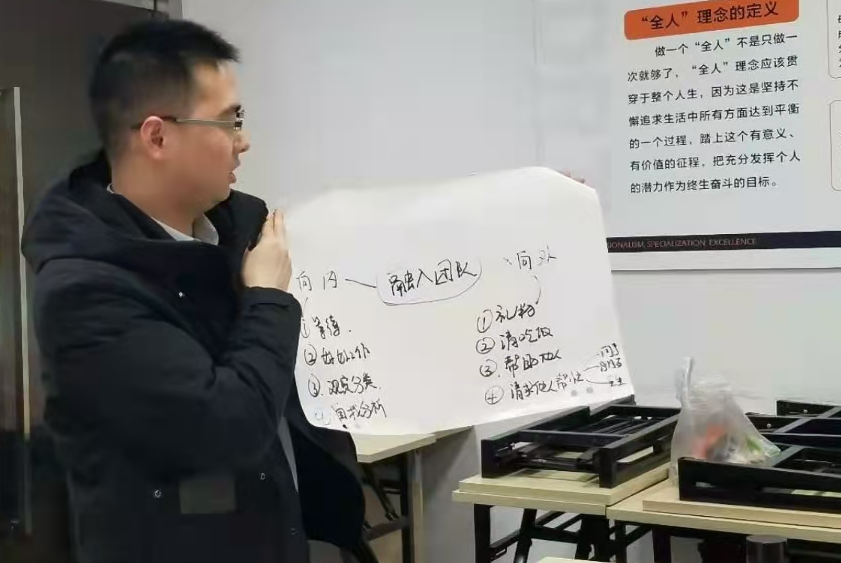 “全人”理念的定义
做一个“全人”不是只做一
次就够了，“全人”理念应该贯
穿于整个人生，因为这是坚持不
懈追求生活中所有方面达到平衡
的一个过程，踏上这个有意义、
有价值的征程，把充分发挥个人
的潜力作为终生奋斗的目标。
SIONALISM, SPECIALIZATION, EXCELLENCE
融入团队
向内
①等待.
②好好工作
③观察分类
④自我分析
向外
①礼物
②请吃饭
③帮助他人
④请求他人帮忙